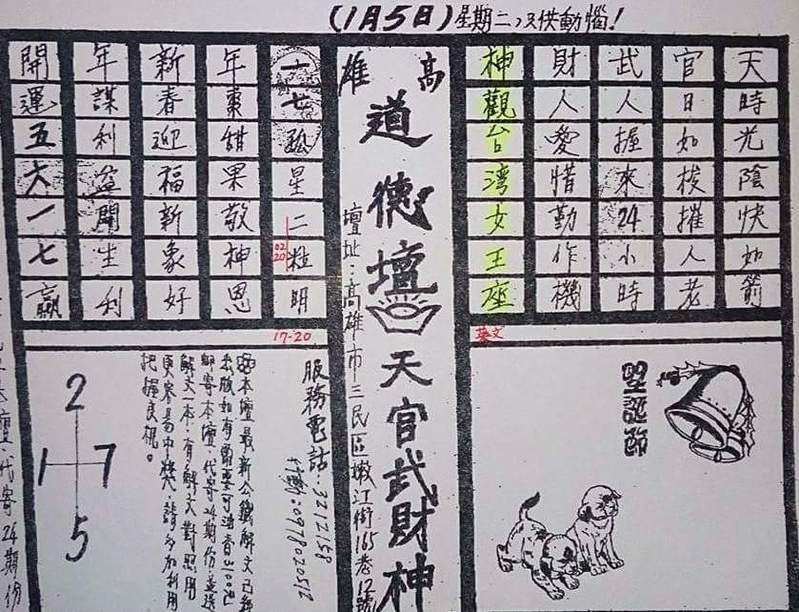 (1月5日)星期二只供動惱!
天時光陰快如箭
官日如梭摧人老
武人握來24小時
財人愛惜勤作機
神觀台灣女王座
英文
聖誕節
高雄
道德壇
天官武財神
壇址:高雄市三民區嫩江街165巷12號
十七孤星二粒明
02
20
17-20
年棗甜果敬神恩
新春迎福新象好
年謀利益開生利
開運五六一七贏
服務電話:3212158
行動:0978020512
本壇最新公籤解文已經
郵寄本壇.代寄24期份.並送
解文一本.有解文對照用
更容易中獎.請多加利用
把握良機。
2
1 7
5
本壇.代寄24期份